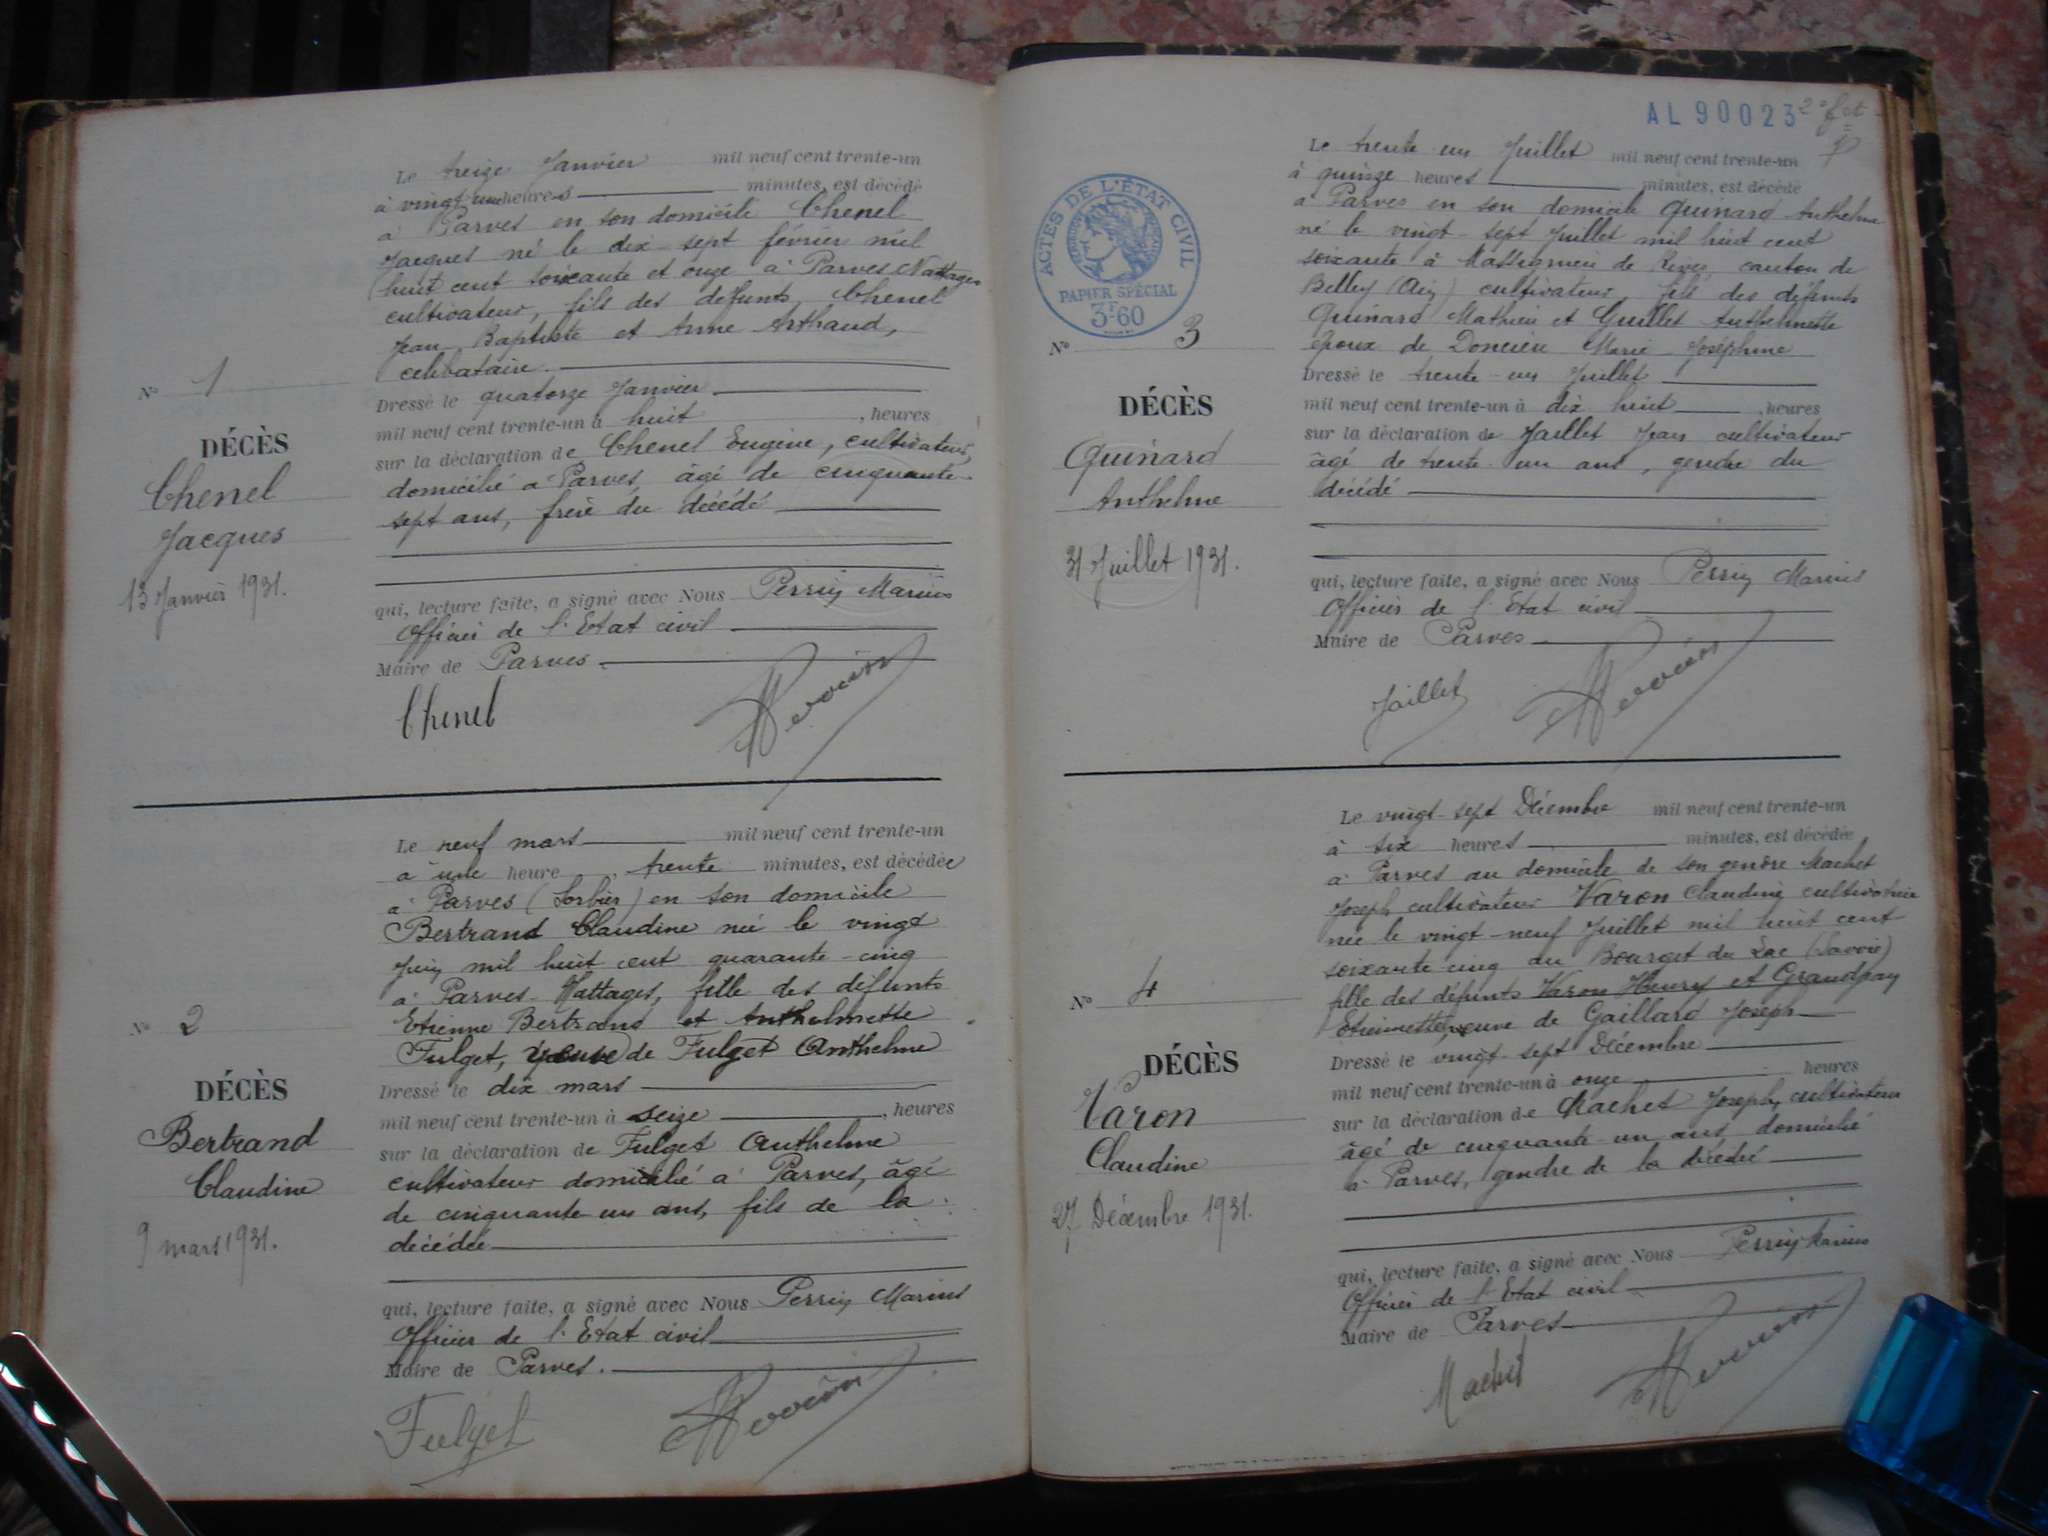 Le treize Janvier mil neuf cent trente-un
à vingt une heures minutes, est décédé
à Parves en son domicile Chenel
Jacques né le dix-sept février mil
huit cent soixante et onze à Parves Nattages
cultivateur, fils des defunts, Chenel
Jean-Baptiste et Anne Arthaud,
celibataire.
No 1
Dressé le quatorze Janvier
mil neuf cent trente-un à huit, heures
DÉCÈS
sur la déclaration de Chenel Eugène, cultivateur,
Chenel
domicilié à Parves, âgé de cinquante-
Jacques
sept ans, frère du décédé
13 Janvier 1931.
qui, lecture faite, a signé avec Nous Perrin Marius
Officier de l'Etat civil
Maire de Parves.
Chenel
Le neuf mars mil neuf cent trente-un
à une heure, trente minutes, est décédée
à Parves (Sorbier) en son domicile
Bertrand Claudine née le vingt
Juin mil huit cent quarante-cinq
à Parves-Nattages, fille des défunts
No 2
Etienne Bertrand et Anthelmette
Fulget, de Fulget Anthelme
DÉCÈS
Dressé le dix mars
mil neuf cent trente-un à seize, heures
Bertrand
sur la déclaration de Fulget Anthelme
Claudine
cultivateur domicilié à Parves, âgé
de cinquante un ans, fils de la
9 mars 1931.
décédée
qui, lecture faite, a signé avec Nous Perrin Marius
Officier de l'Etat civil
Maire de Parves.
Fulget
AL 90023
Le trente un Juillet mil neuf cent trente-un
à quinze heures minutes, est décédé
à Parves en son domicile Quinard Anthelme
né le vingt-sept Juillet mil huit cent
soixante à Massignieu de Rives, canton de
Belley (Ain) cultivateur, fils des défunts
Quinard Mathieu et Guillet Anthelmette
époux de Marie Joséphine
ACTES DE L'ÉTAT CIVIL
PAPIER SPÉCIAL
3F60
No 3
Dressé le trente-un Juillet
DÉCÈS
mil neuf cent trente-un à dix huit, heures
Quinard
sur la déclaration de Jaillet Jean cultivateur
Anthelme
âgé de trente un ans, gendre du
décédé
31 Juillet 1931.
qui, lecture faite, a signé avec Nous Perrin Marius
Officier de l'Etat civil
Maire de Parves
Jaillet
Le vingt-sept Décembre mil neuf cent trente-un
à six heures minutes, est décédée
à Parves au domicile de son gendre Machet
Joseph cultivateur Varon Claudine cultivatrice
née le vingt-neuf Juillet mil huit cent
soixante cinq au Bourget du Lac (Savoie)
No 4
fille des défunts Varon Henry et Grandpay
Etiennette, veuve de Gaillard Joseph
DÉCÈS
Dressé le vingt-sept Décembre
mil neuf cent trente-un à onze heures
Varon
sur la déclaration de Machet Joseph, cultivateur
Claudine
âgé de cinquante-un ans domicilié
à Parves, gendre de la décédée
27 Décembre 1931.
qui, lecture faite, a signé avec Nous Perrin Marius
Officier de l'Etat civil
Maire de Parves
Machet